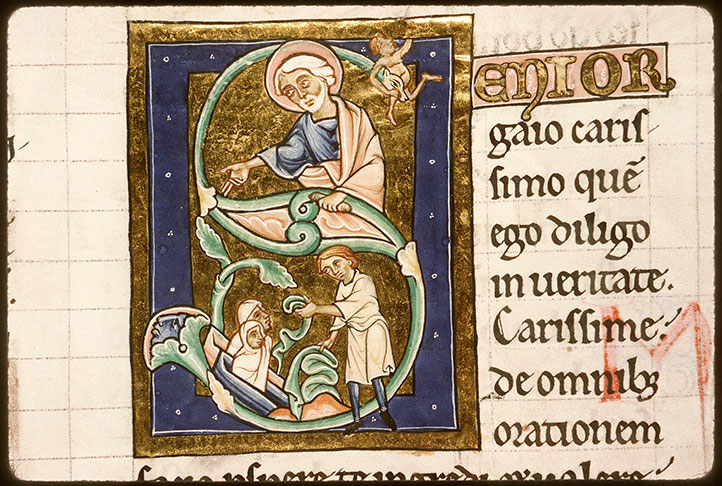 SENIOR
gaio caris
simo quē
ego diligo
in ueritate.
Carissime:
de omnibꝫ
orationem